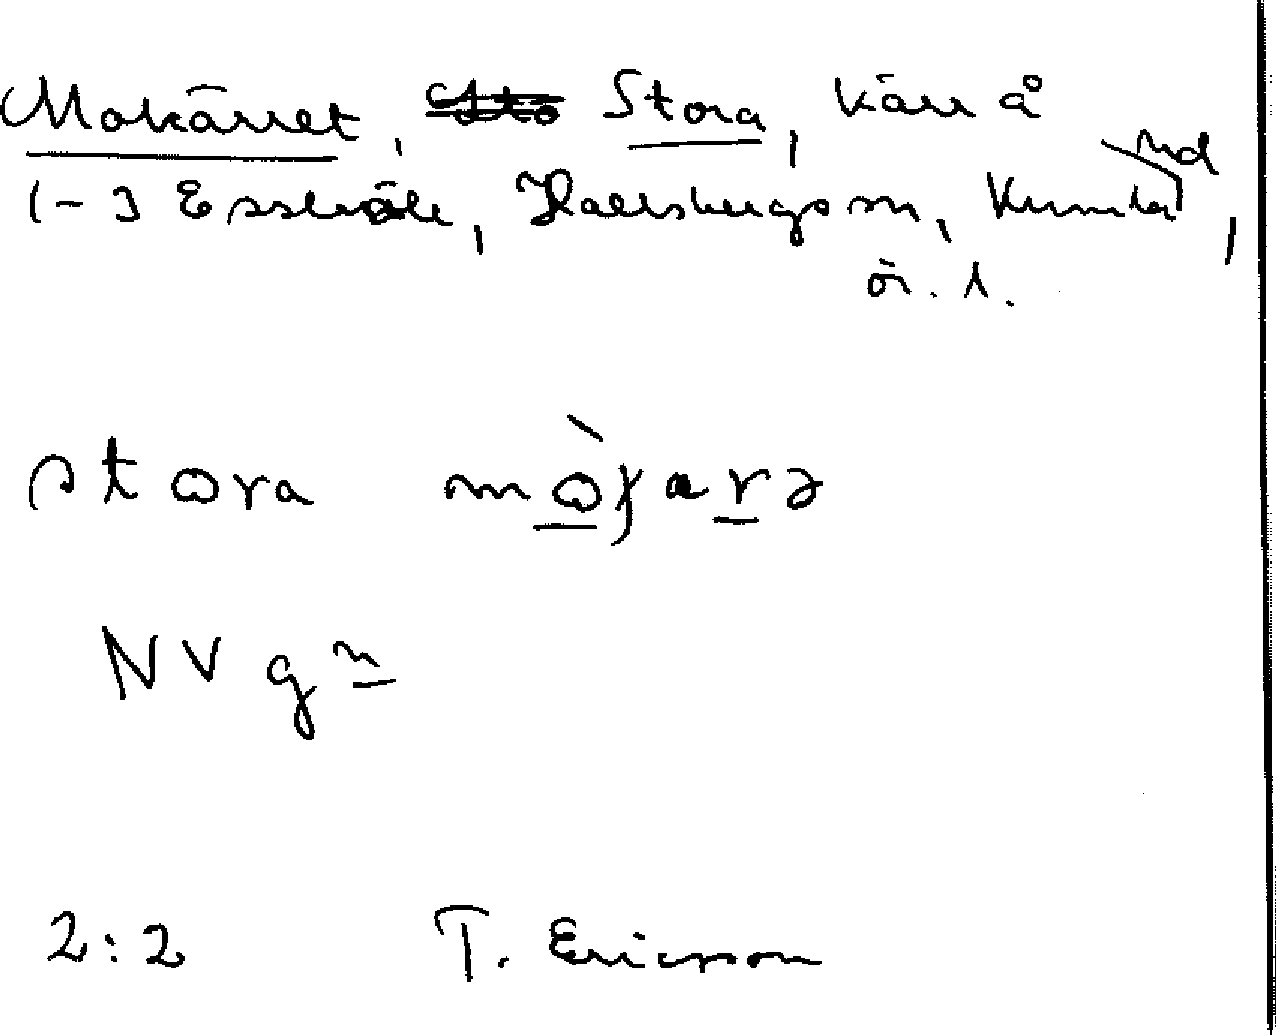 Mokärret, Stora, kärr å
1-3 Esslvåle, Hallsbergs sn, Kumla hd,
ör. l.
stora mòʃærə
NV gn
2:2 T. Ericsson